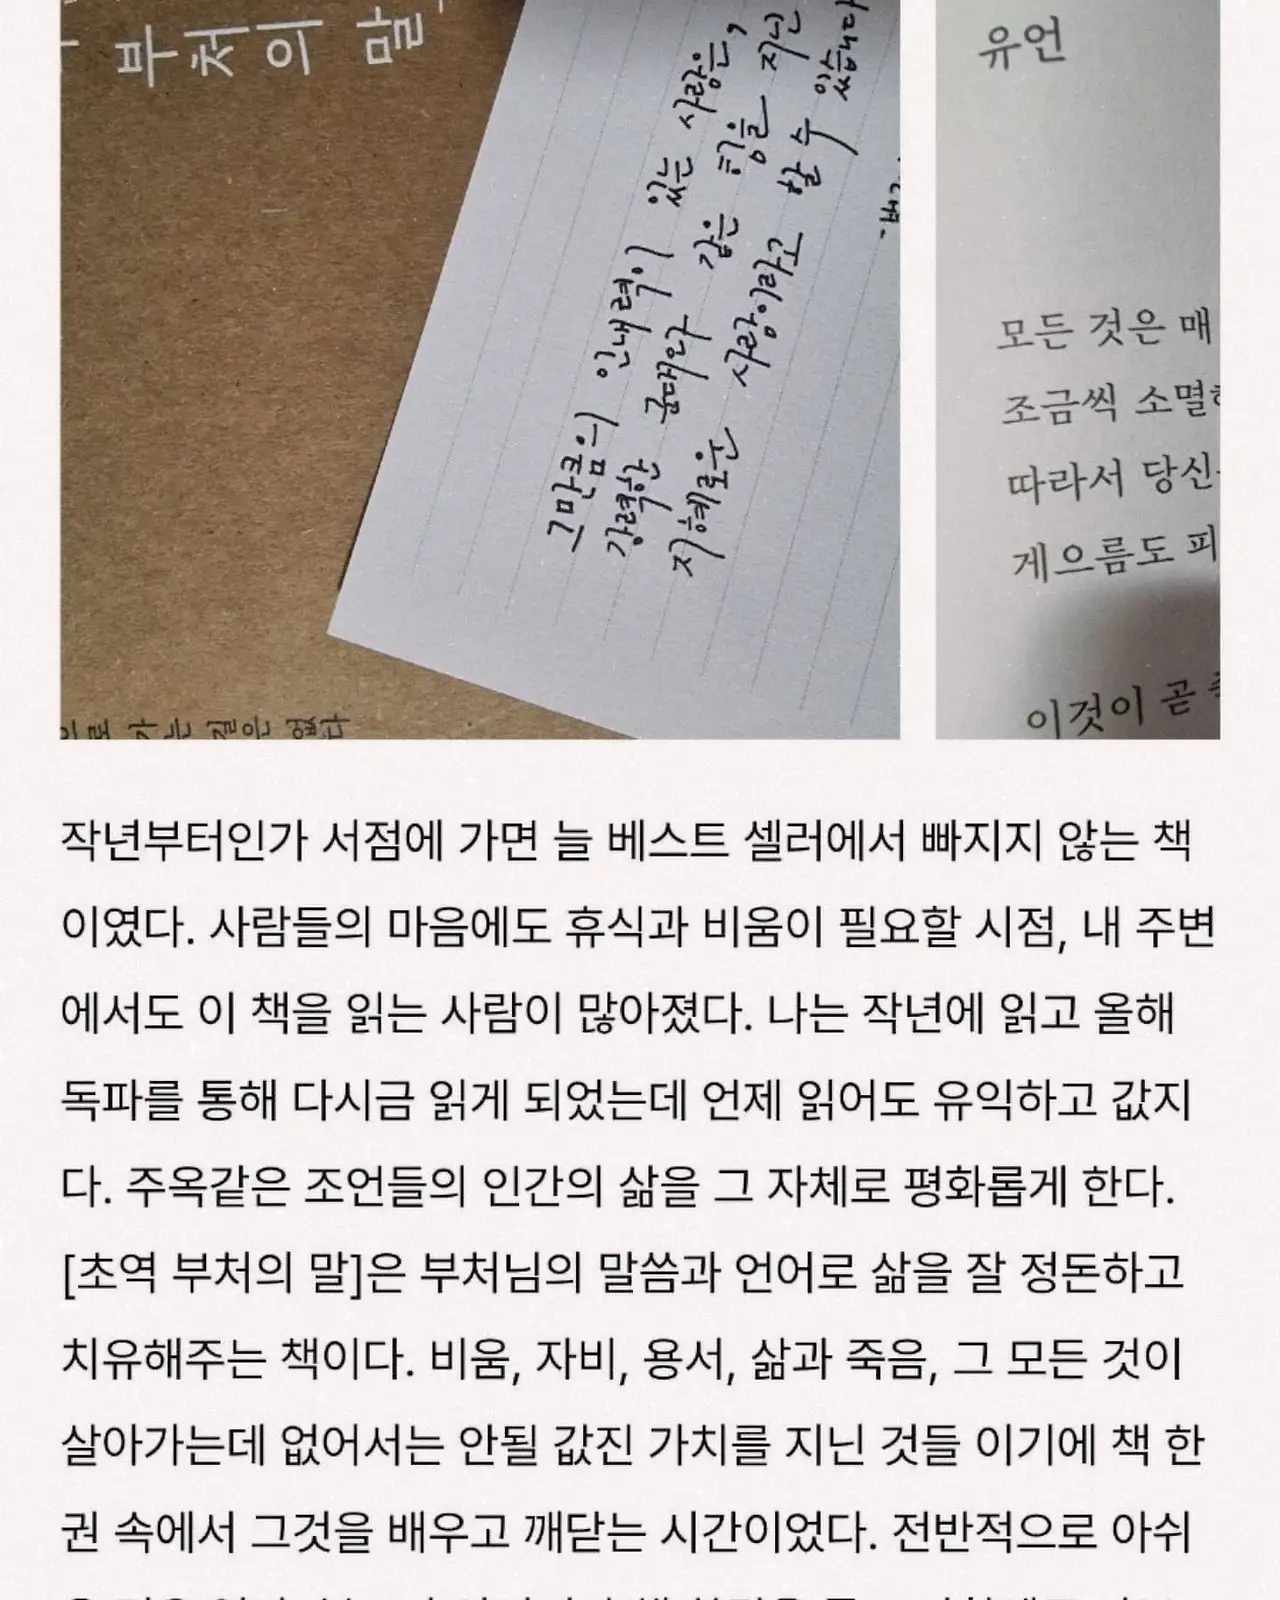 부처의 말
그만큼의 인내력이 있는 사랑은,
강력한 군대와 같은 힘을 지닌
지혜로운 사랑이라고 할 수 있습니다
으로 가는 길은 없다
유언
모든 것은 매
조금씩 소멸
따라서 당신
게으름도 피
이것이 곧
작년부터인가 서점에 가면 늘 베스트 셀러에서 빠지지 않는 책
이였다. 사람들의 마음에도 휴식과 비움이 필요할 시점, 내 주변
에서도 이 책을 읽는 사람이 많아졌다. 나는 작년에 읽고 올해
독파를 통해 다시금 읽게 되었는데 언제 읽어도 유익하고 값지
다. 주옥같은 조언들의 인간의 삶을 그 자체로 평화롭게 한다.
[초역 부처의 말]은 부처님의 말씀과 언어로 삶을 잘 정돈하고
치유해주는 책이다. 비움, 자비, 용서, 삶과 죽음, 그 모든 것이
살아가는데 없어서는 안될 값진 가치를 지닌 것들 이기에 책 한
권 속에서 그것을 배우고 깨닫는 시간이었다. 전반적으로 아쉬